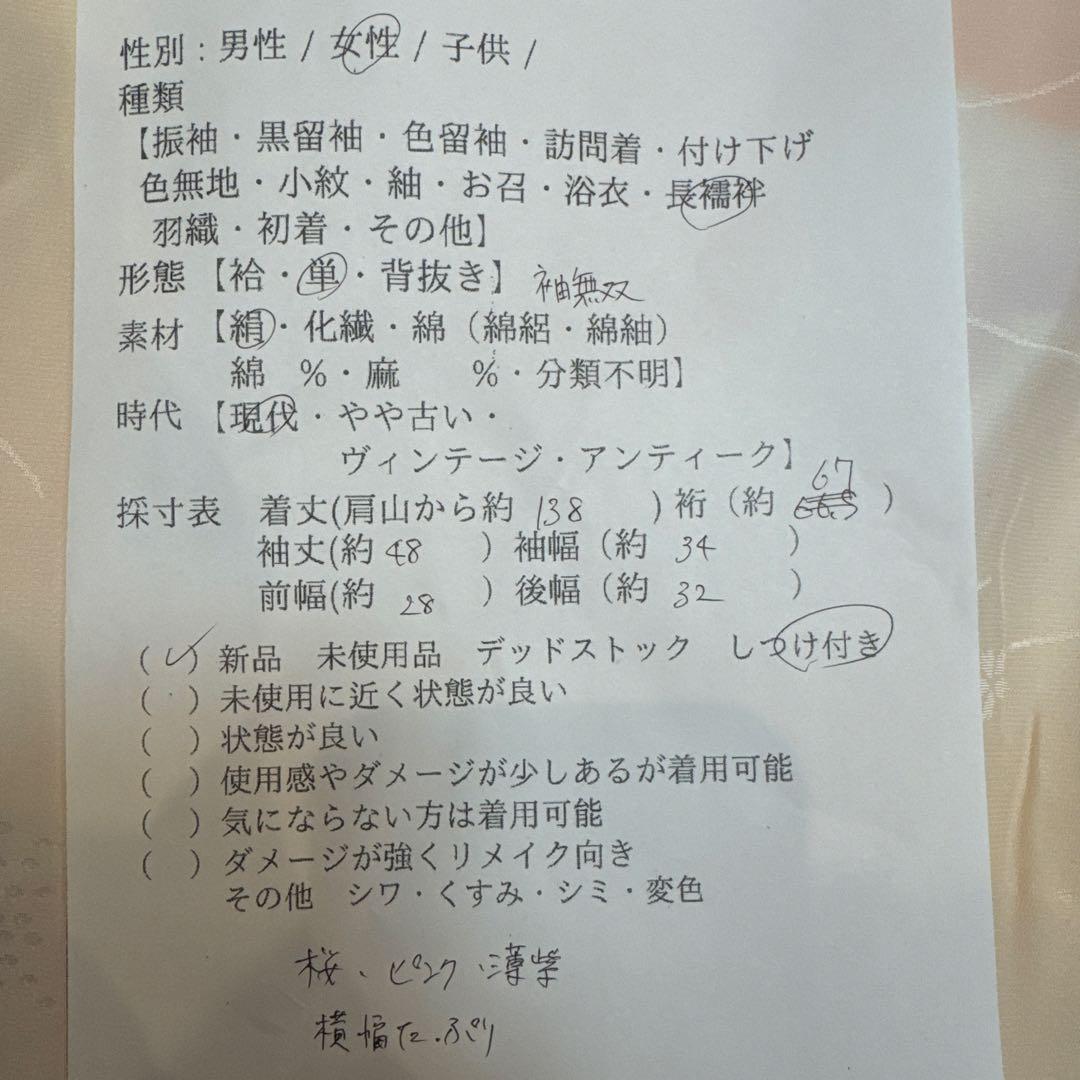 性別：男性 / 女性 / 子供 /
種類
【振袖・黒留袖・色留袖・訪問着・付け下げ
色無地・小紋・紬・お召・浴衣・長襦袢
羽織・初着・その他】
形態 【袷・単・背抜き】 袖無双
素材 【絹・化繊・綿（綿絽・綿紬）
綿 %・麻 %・分類不明】
時代 【現代・やや古い・
ヴィンテージ・アンティーク】
採寸表 着丈(肩山から約 138 ) 裄（約 67 ）
袖丈(約 48 ）袖幅（約 34 ）
前幅(約 28 ）後幅（約 32 ）
(✓) 新品 未使用品 デッドストック しつけ付き
( ) 未使用に近く状態が良い
( ) 状態が良い
( ) 使用感やダメージが少しあるが着用可能
( ) 気にならない方は着用可能
( ) ダメージが強くリメイク向き
その他 シワ・くすみ・シミ・変色
桜、ピンク、薄紫
横幅たっぷり